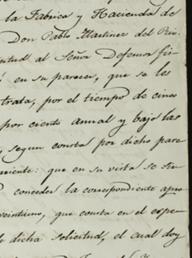 la Fabrica y Hacienda de
Don Pablo Martinez del Rio.
al Señor Defensor fis
en su parecer, que se les
trata, por el tiempo de cinco
por ciento anual y bajo las
segun consta por dicho pare
que en su vista se sir
conceder la correspondiente apro
que consta en el espe
dicha solicitud, el cual doy